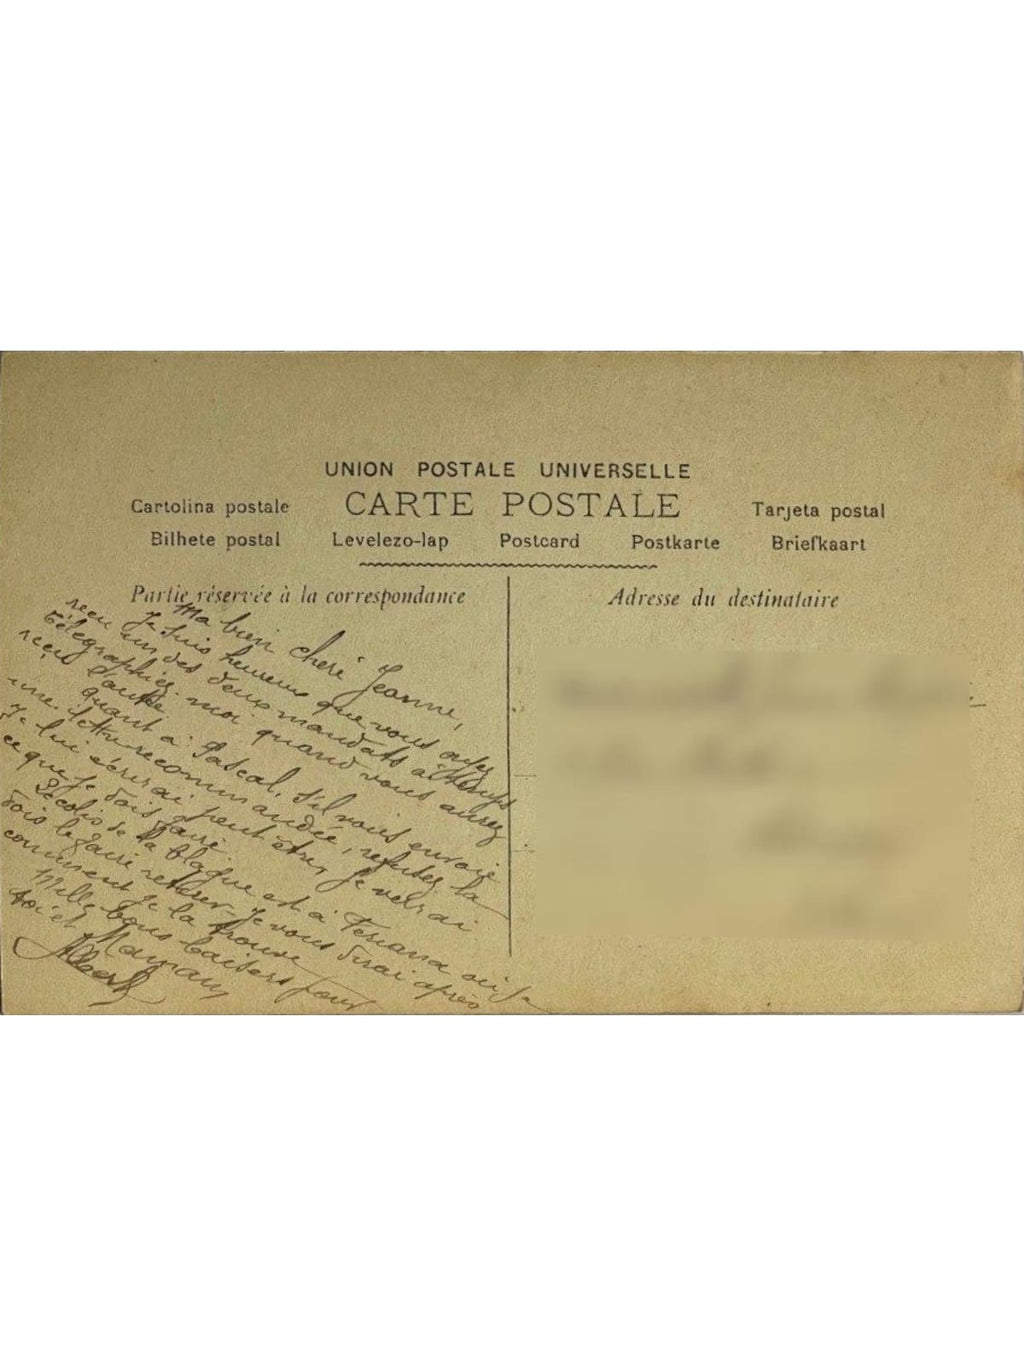 UNION POSTALE UNIVERSELLE
CARTE POSTALE
Cartolina postale Tarjeta postal
Bilhete postal Levelezo-lap Postcard Postkarte Briefkaart
Partie réservée à la correspondance
Adresse du destinataire
Ma bien cheré Jeanne,
Je suis heureux que vous ayez
reçu un des deux mandats à temps
télégraphiez-moi quand vous aurez
reçu l'autre.
quant à Pascal, s'il vous envoie
une lettre recommandée, refusez-la
Je lui écrirai peut être, Je verrai
ce que Je dois faire.
Le colis de la blague est à Feriana où Je
dois le faire retirer. Je vous dirai après
comment Je la trouve
Mille bons baisers pour
toi et Maman
Albert